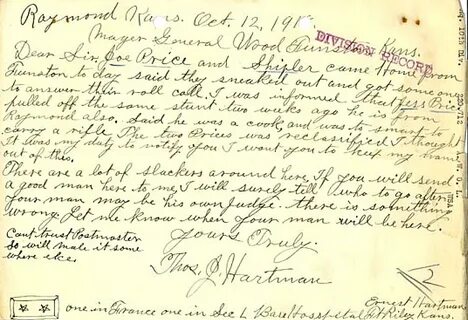 Raymond Kans. Oct. 12, 191
Mayer General Wood Funston, Kans.
DIVISION RECORD
Dear Sir, Joe Price and Shipler came Home from
Funston to day said they sneaked out and got some one
to answer their roll call. I was informed that Jess Price
pulled off the same stunt two weeks ago he is from
Raymond also. Said he was a cook, and was to smart to
carry a rifle The two Prices was reclassified I thought
It was my duty to notify you I want you to keep my name
out of this.
There are a lot of slackers around here, If you will send
a good man here to me, I will surely tell who to go after
your man may be his own Judge. there is something
wrong. Let me know when your man will be here.
Cant trust Postmaster
So will mail it some
where else.
Yours Truly.
Thos. J. Hartman
one in France one in Sec L Base Hosspital
Ernest Hartman
Ft Riley Kans.